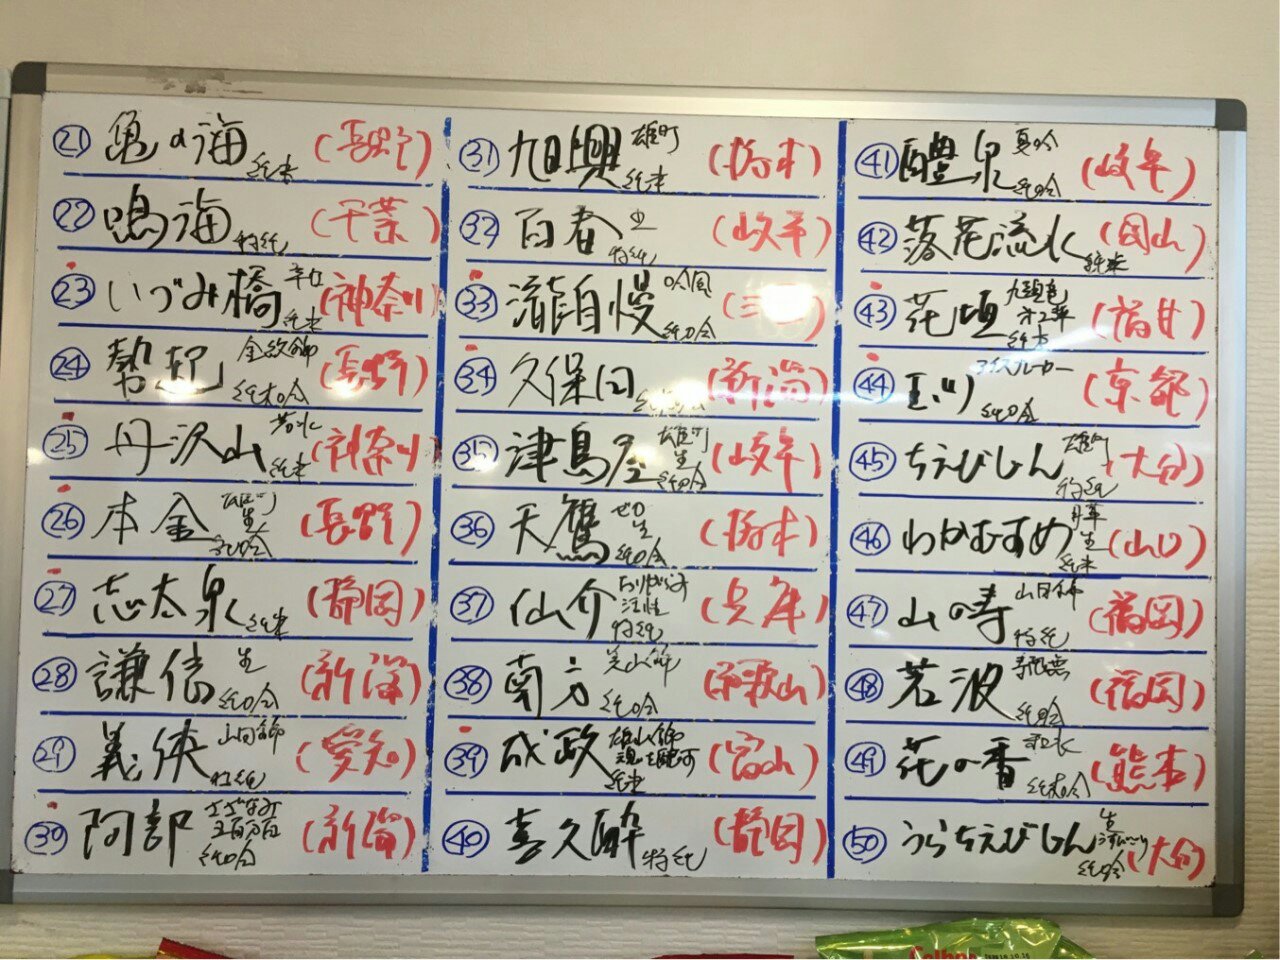 ㉑ 亀の海 純米 (長野)
㉒ 鳴海 特純 (千葉)
㉓ いづみ橋 辛口 純米 (神奈川)
㉔ 勢起 金紋錦 純米吟 (長野)
㉕ 丹沢山 若水 純米 (神奈川)
㉖ 本金 雄町 生 純吟 (長野)
㉗ 志太泉 純米 (静岡)
㉘ 謙信 生 純吟 (新潟)
㉙ 義侠 山田錦 特純 (愛知)
㉚ 阿部 さざなみ 五百万石 純吟 (新潟)
㉛ 旭興 雄町 純米 (栃木)
㉜ 百春 生 特純 (岐阜)
㉝ 瀧自慢 純吟 (三重)
㉞ 久保田 (新潟)
㉟ 津島屋 雄町 生 純吟 (岐阜)
㊱ 天鷹 生 純吟 (栃木)
㊲ 仙介 おりがらみ 活性 特純 (兵庫)
㊳ 南方 美山錦 純吟 (和歌山)
㊴ 成政 雄山錦 純米 (富山)
㊵ 喜久醉 特純 (静岡)
㊶ 醴泉 夏吟 純吟 (岐阜)
㊷ 落花流水 純米 (岡山)
㊸ 花垣 純米 (福井)
㊹ 玉川 アイスブレーカー 純吟 (京都)
㊺ ちえびじん 雄町 特純 (大分)
㊻ わかむすめ 生 純米 (山口)
㊼ 山の寿 山田錦 特純 (福岡)
㊽ 若波 純吟 (福岡)
㊾ 花の香 和水 純米吟 (熊本)
㊿ うらちえびじん 生 うすにごり 純吟 (大分)
Calbee